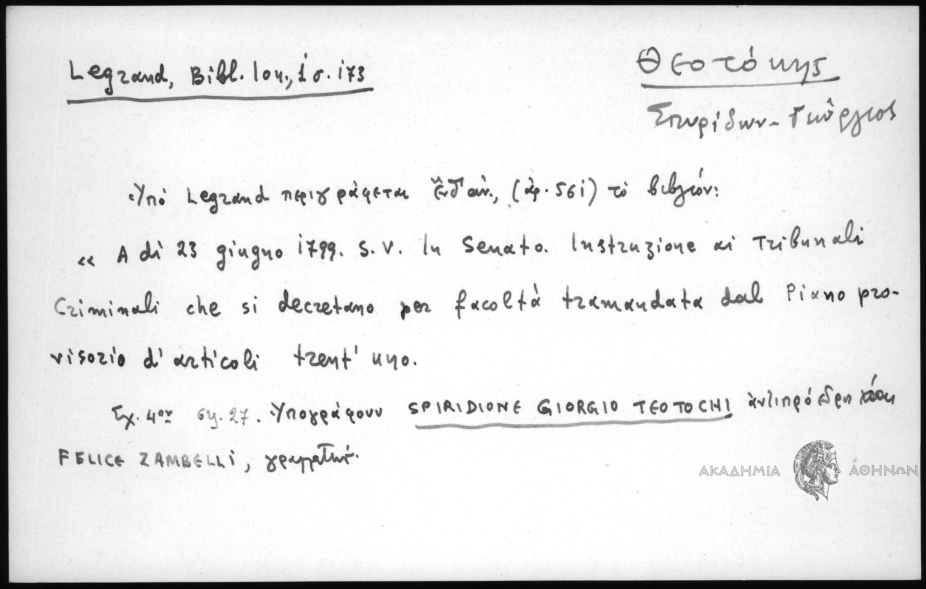 Legrand, Bibl. Ion., 1 σ. 173
Θεοτόκης
Σπυρίδων-Γεώργιος
Ὑπὸ Legrand περιγράφεται (ἀρ. 561) τὸ βιβλίον:
« A dì 23 giugno 1799. S. V. In Senato. Instruzione ai Tribunali
Criminali che si decretano per facoltà tramandata dal Piano pro-
visorio d'articoli trent'uno.
Σχ. 4ον σημ. 27. Ὑπογράφουν SPIRIDIONE GIORGIO TEOTOCHI ἀντιπρόεδρος
FELICE ZAMBELLI, γραμματεύς.
ΑΚΑΔΗΜΙΑ ΑΘΗΝΩΝ